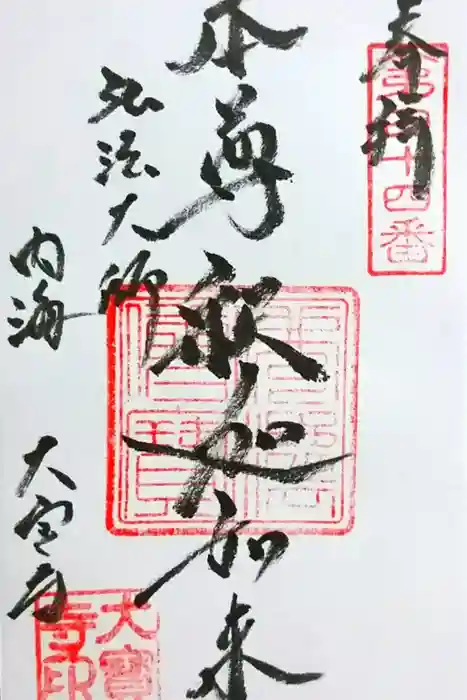 奉拝
第四十四番
本尊釈迦如来
弘法大師
内海
大宝寺
大寳寺印